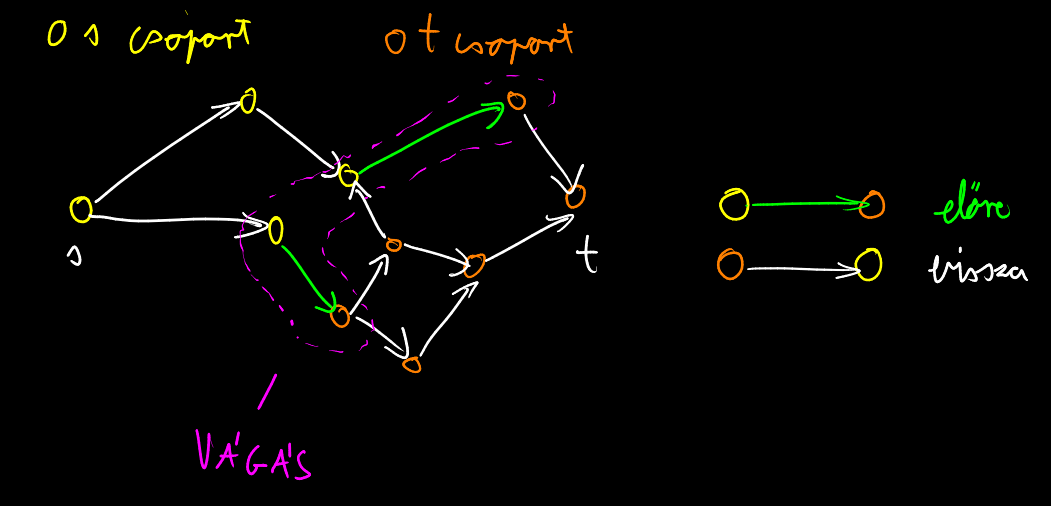 s csoport
t csoport
s
t
előre
vissza
VÁGÁS